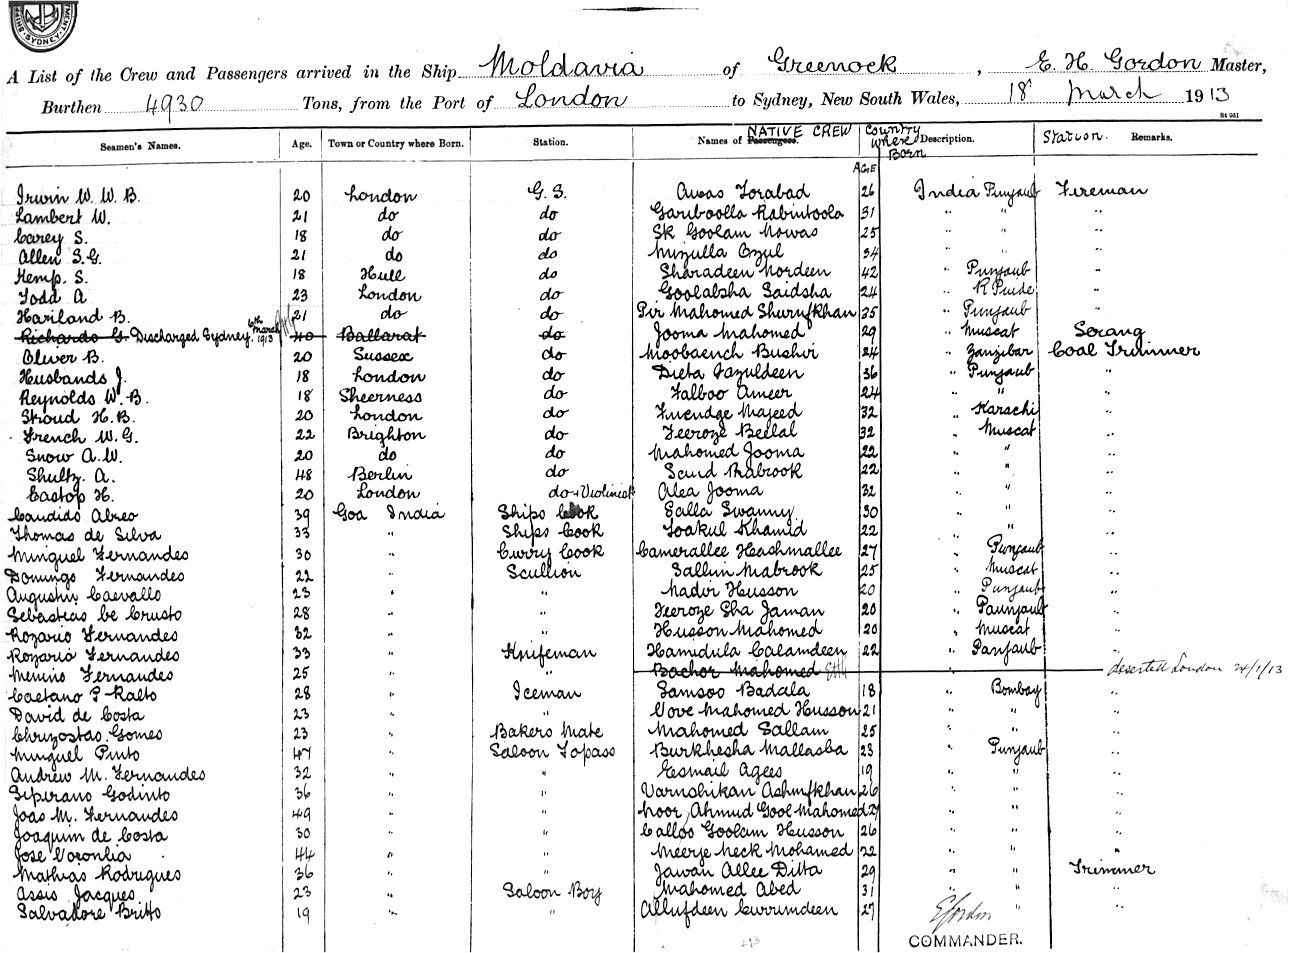 SHIPPING SYDNEY
A List of the Crew and Passengers arrived in the Ship Moldavia of Greenock, E. H. Gordon Master,
Burthen 4930 Tons, from the Port of London to Sydney, New South Wales, 18 March 1913
St 951
Seamen's Names. Age. Town or Country where Born. Station. Names of Passengers. NATIVE CREW AGE Country where Born Description. Station. Remarks.
Irwin W. W. B. 20 London G. S. Awas Torabad 26 India Punjaub Fireman
Lambert W. 21 do do Gariboolla Rabintoola 31 " " "
Carey S. 18 do do Sk Goolam Nowas 25 " " "
Allen S. G. 21 do do Nuzulla Ozul 34 " " "
Kemp. S. 18 Hull do Sharadeen Nordeen 42 " Punjaub "
Todd A 23 London do Goolabsha Saidsha 24 " R Pinde "
Hariland B. 21 do do Pir Mahomed Shurufkhan 35 " Punjaub "
Richards G. Discharged Sydney. 6th March 1913 40 Ballarat do Jooma Mahomed 29 " Muscat Serang
Oliver B. 20 Sussex do Moobaench Bushir 24 " Zanzibar Coal Trimmer
Husbands J. 18 London do Dieta Fazuldeen 36 " Punjaub "
Reynolds W. B. 18 Sheerness do Falboo Ameer 24 " " "
Stroud H. B. 20 London do Majeed 32 " Karachi "
French W. G. 22 Brighton do Feeroze Beelal 32 " Muscat "
Snow A. W. 20 do do Mahomed Jooma 22 " " "
Shultz. A. 48 Berlin do Mabrook 22 " " "
Castop H. 20 London do + Violinist Alea Jooma 32 " " "
Candido Abreo 39 Goa India Ships Cook Salla Swamy 30 " " "
Thomas de Silva 33 " Ships Cook Joakul Khamid 22 " " "
Minguel Fernandes 30 " Curry Cook Camerallee Hashmallee 27 " Punjaub "
Domingo Fernandes 22 " Scullion Sallim Mabrook 25 " Muscat "
Augustin Caevallo 23 " " Nadir Husson 20 " Punjaub "
Sebastias be Crusto 28 " " Feeroze Sha Jaman 20 " Paunjaub "
Rozario Fernandes 32 " " Husson Mahomed 20 " Muscat "
Rozario Fernandes 33 " Knifeman Hamidula Calamdeen 22 " Panjaub "
Menino Fernandes 25 " " Bachor Mahomed deserted London 24/1/13
Caetano P Ralto 28 " Iceman Samsoo Badala 18 " Bombay "
David de Costa 23 " " Vove Mahomed Husson 21 " " "
Chrizostas Gomes 23 " Bakers Mate Mahomed Sallam 25 " " "
Minguel Pinto 47 " Saloon Topass Burkhesha Mallasba 23 " Punjaub "
Andrew M. Fernandes 32 " " Esmail Agees 19 " " "
Siperano Godinto 36 " " Varnshikan Ashrufkhan 26 " " "
Joao M. Fernandes 49 " " Noor Ahmud Gool Mahomed 27 " " "
Joaquim de Costa 30 " " Calloo Goolam Husson 26 " " "
Jose Voronlia 44 " " Meerje Neck Mohamed 22 " " "
Mathias Rodrigues 36 " " Jawan Allee Ditta 29 " " Trimmer
Assis Jacques 23 " Saloon Boy Mahomed Abed 31 " " "
Salvadore Britto 19 " " Allufdeen Currimdeen 27 " "
EGordon
COMMANDER.